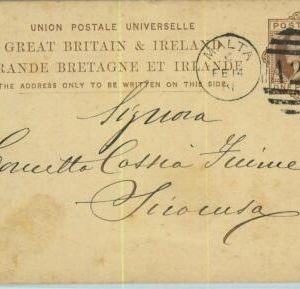 UNION POSTALE UNIVERSELLE
GREAT BRITAIN & IRELAND
GRANDE BRETAGNE ET IRLANDE
THE ADDRESS ONLY TO BE WRITTEN ON THIS SIDE
MALTA
FE 14
POST
Signora
Cassia
Siracusa